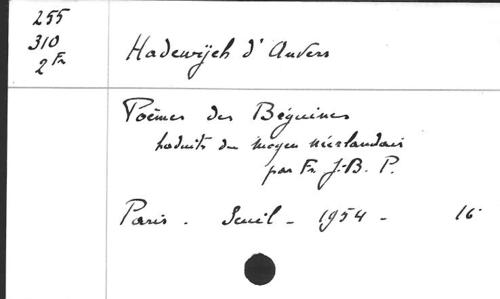 255
310
2 Fr
Hadewijch d'Anvers
Poèmes des Béguines
traduits du moyen néerlandais
par Fr. J.-B. P.
Paris - Seuil - 1954 - 16